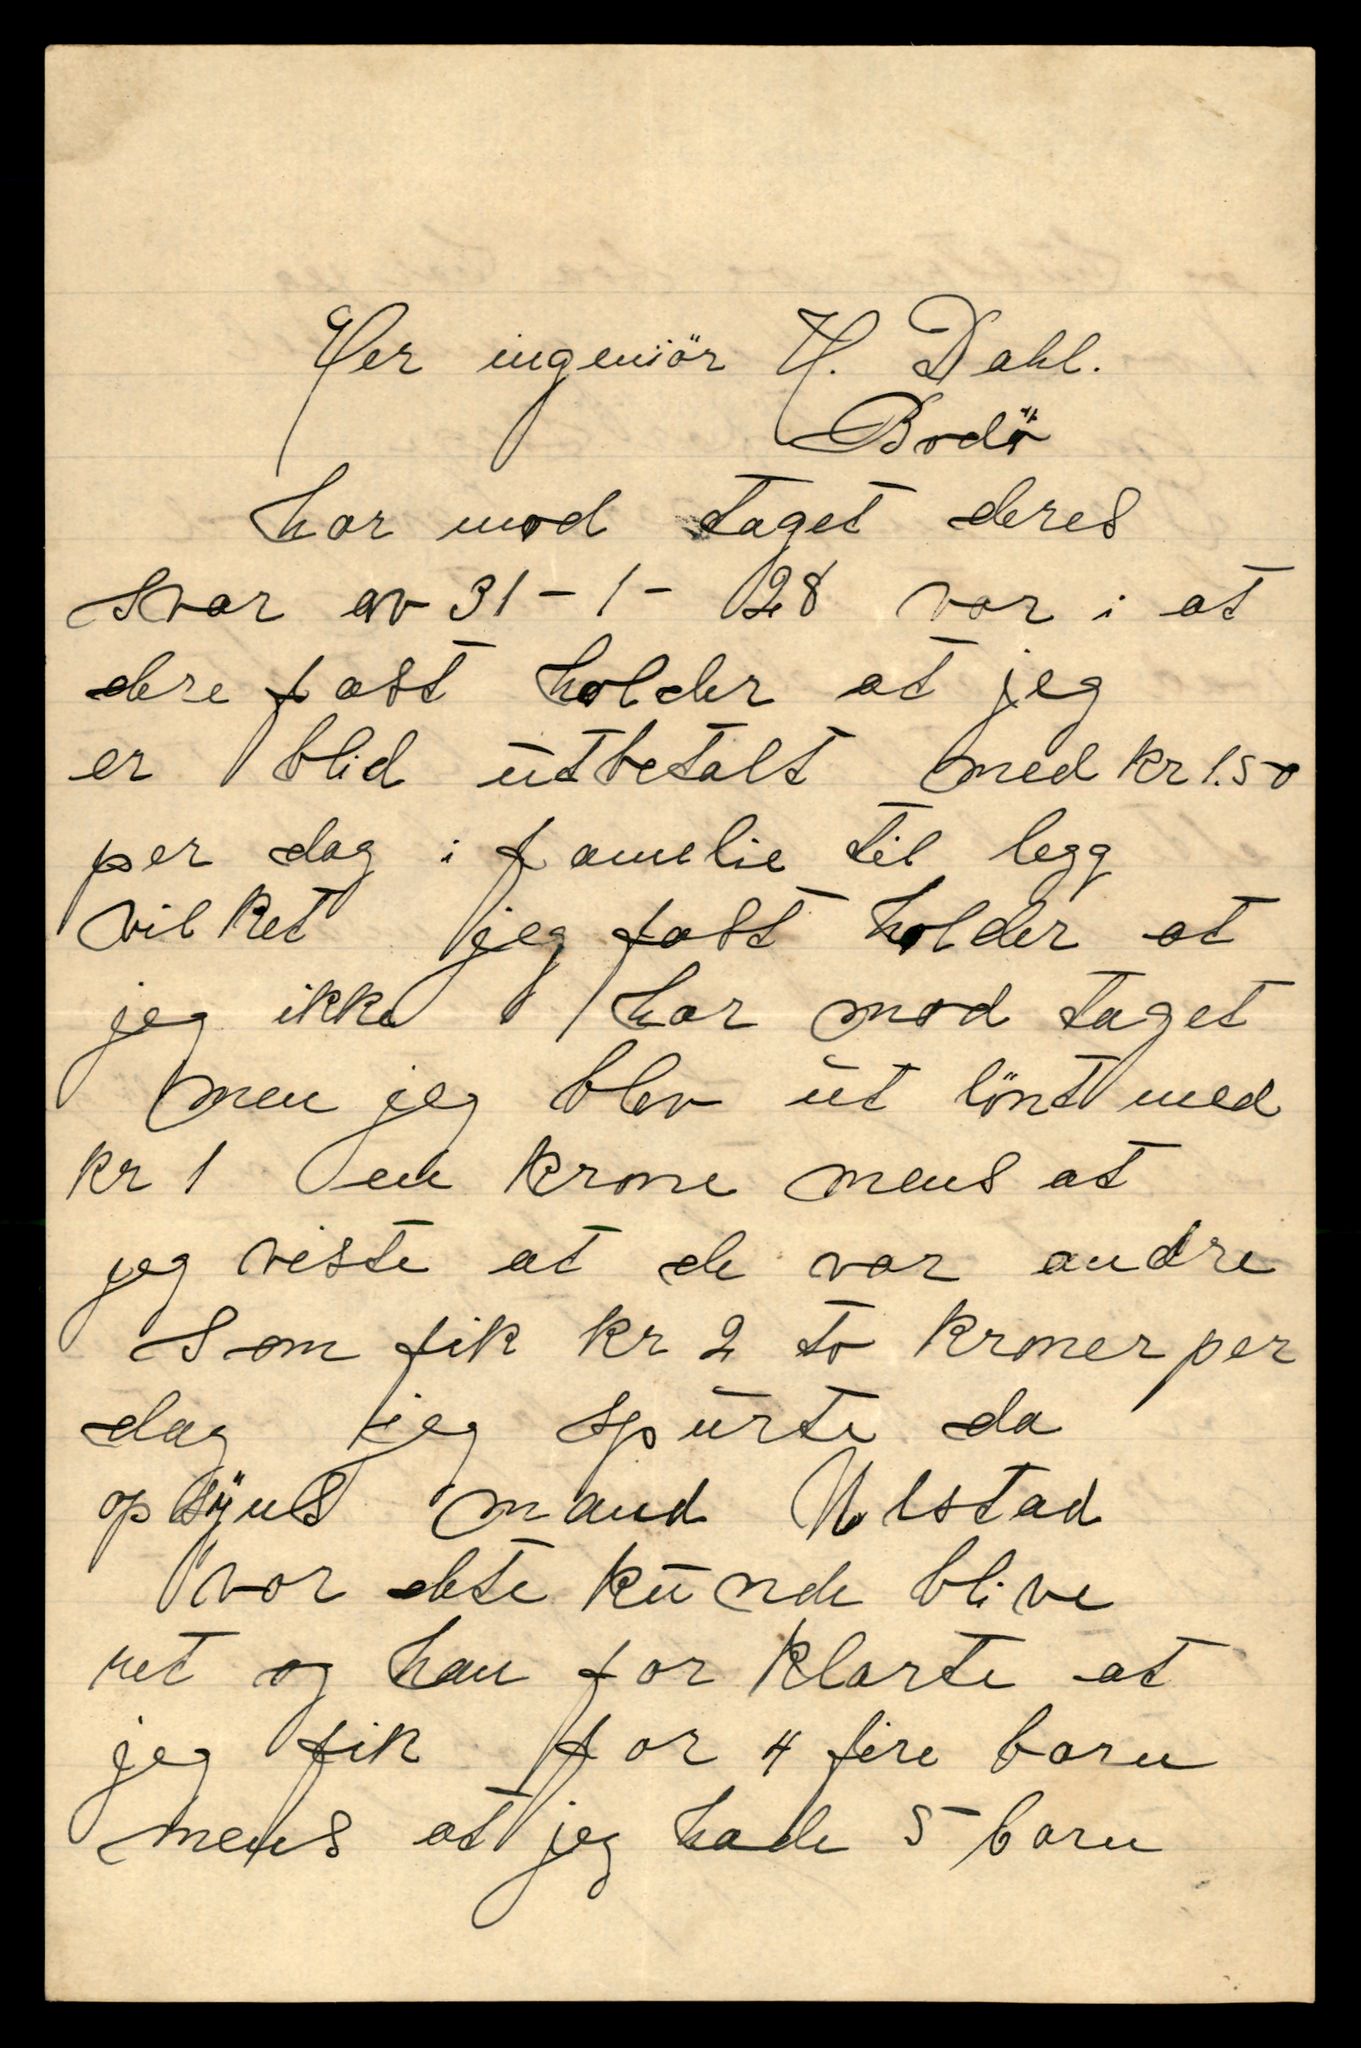 Her ingeniör H. Dahl.
Bodö
har mod taget deres
svar av 31-1-28 vor i at
dere fast holder at jeg
er blid ütbetalt med kr 1.50
per dag i famelie til legg
vilket jeg fast holder at
jeg ikke har mod taget
men jeg blev üt lönt med
kr 1 en krone mens at
jeg viste at de var andre
som fik kr 2 to kroner per
dag jeg spürte da
opsÿns mand Ulstad
vor dete künde blive
ret og han for klarte at
jeg fik for 4 fire barn
mens at jeg hade 5 barn